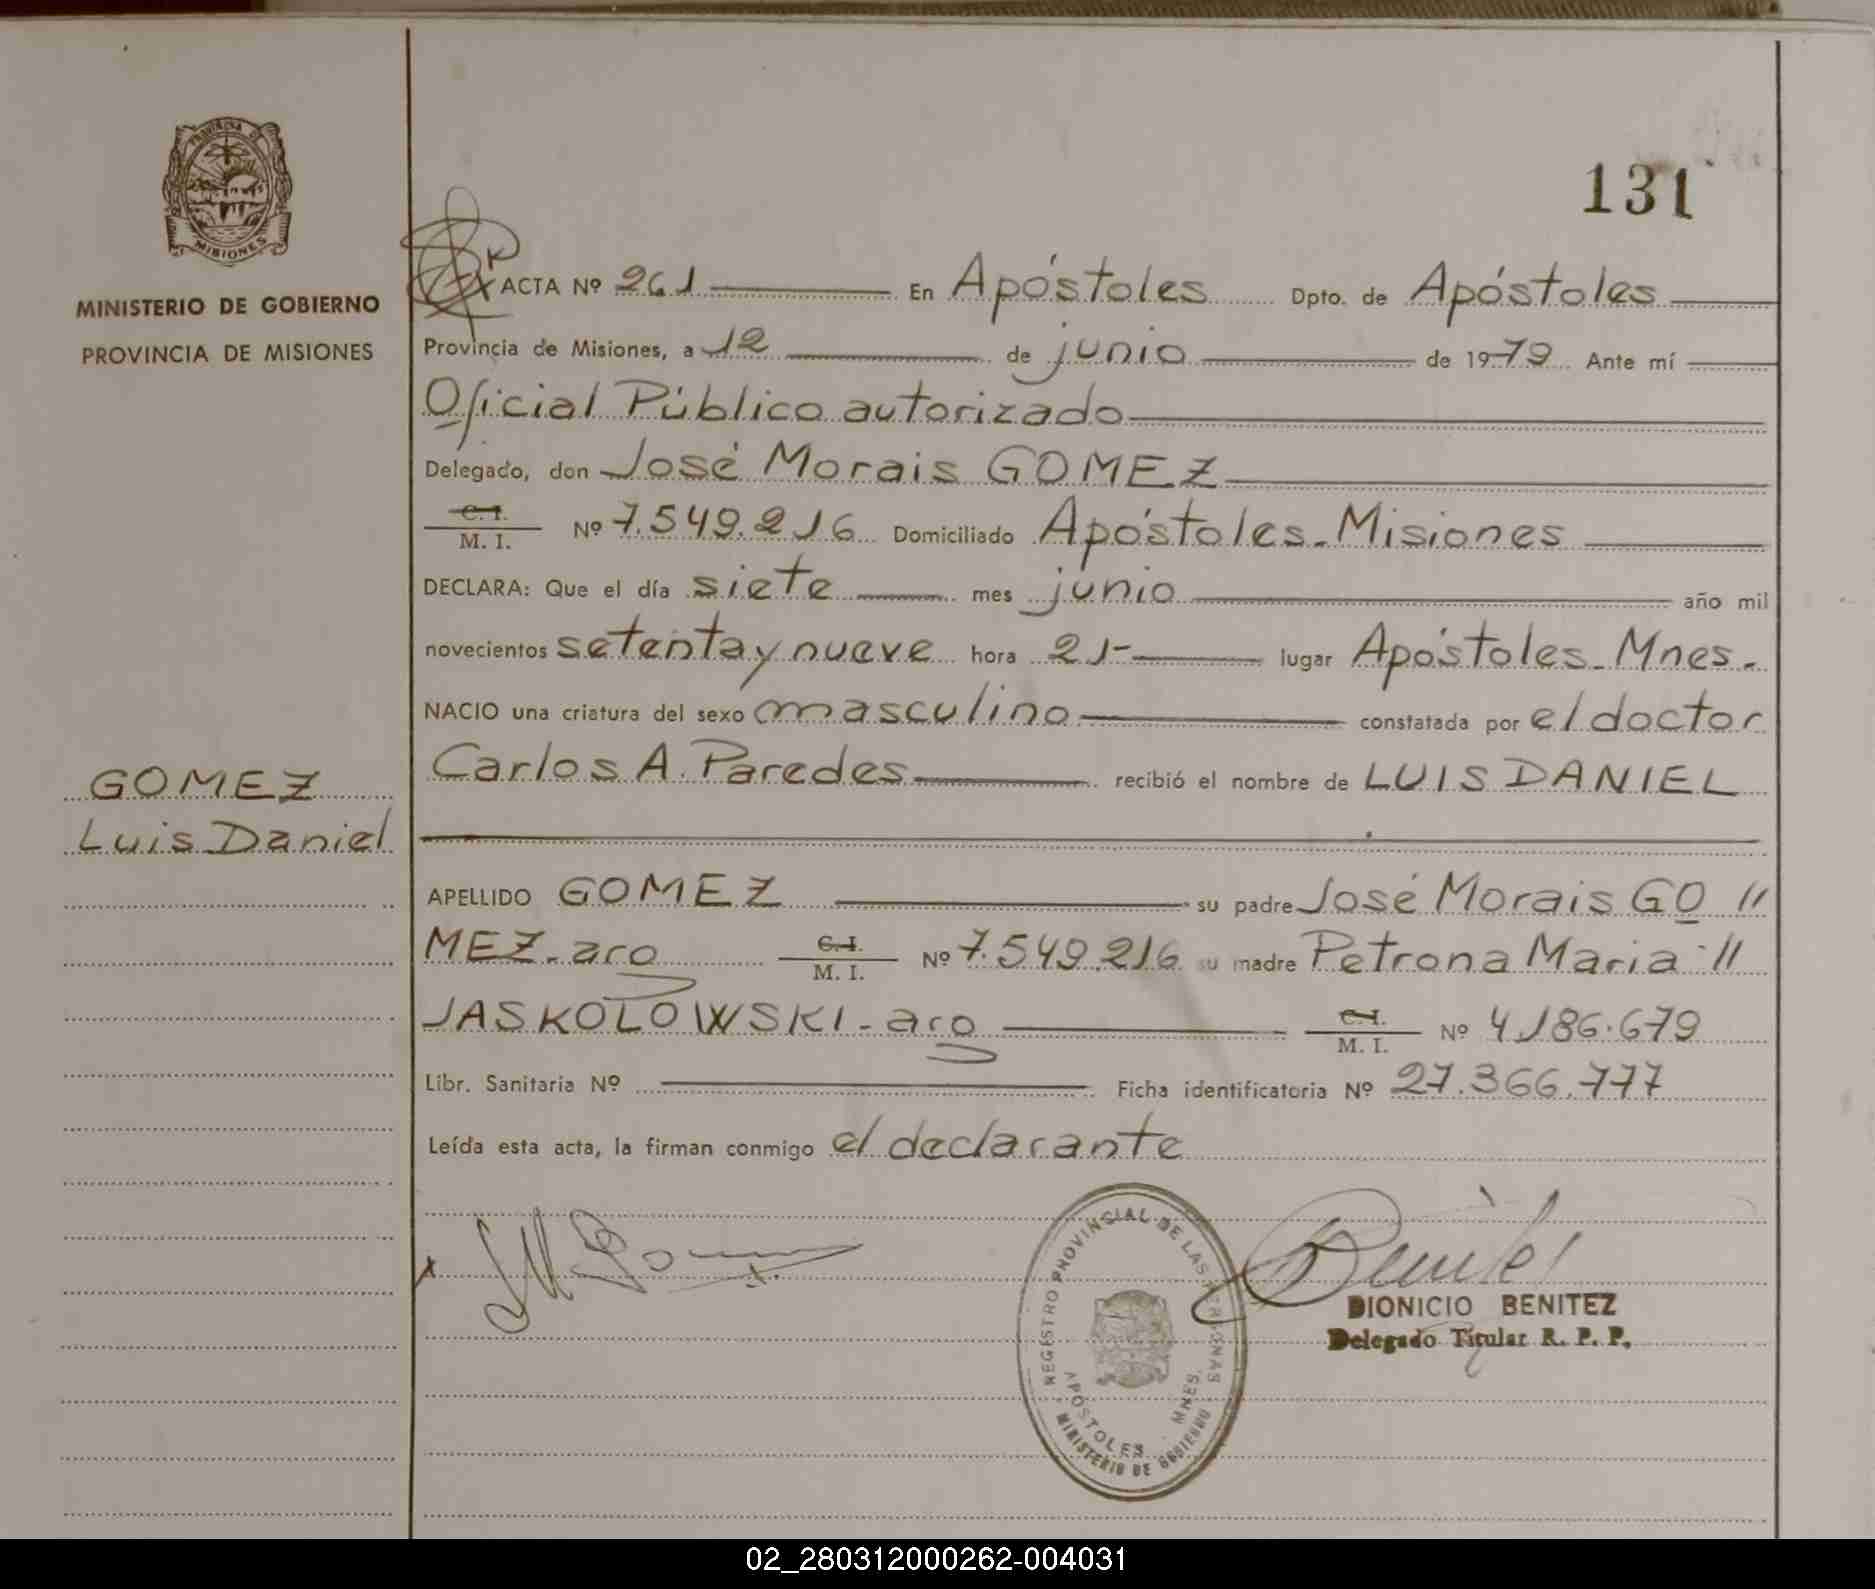 PROVINCIA DE
MISIONES
MINISTERIO DE GOBIERNO
PROVINCIA DE MISIONES
GOMEZ
Luis Daniel
131
ACTA Nº 261 En Apóstoles Dpto. de Apóstoles
Provincia de Misiones, a 12 de junio de 1979 Ante mí
Oficial Público autorizado
Delegado, don José Morais GOMEZ
C. I.
M. I. Nº 7.549.216 Domiciliado Apóstoles-Misiones
DECLARA: Que el día siete mes junio año mil
novecientos setenta y nueve hora 21- lugar Apóstoles-Mnes.
NACIO una criatura del sexo masculino constatada por el doctor
Carlos A. Paredes recibió el nombre de LUIS DANIEL
APELLIDO GOMEZ su padre José Morais GO //
MEZ-aro C. I.
M. I. Nº 7.549.216 su madre Petrona Maria //
JASKOLOWSKI-aro C. I.
M. I. Nº 4186.679
Libr. Sanitaria Nº Ficha identificatoria Nº 27.366.777
Leída esta acta, la firman conmigo el declarante
REGISTRO PROVINCIAL DE LAS PERSONAS
APÓSTOLES MNES.
MINISTERIO DE GOBIERNO
Benitez
DIONICIO BENITEZ
Delegado Titular R. P. P.
02_280312000262-004031